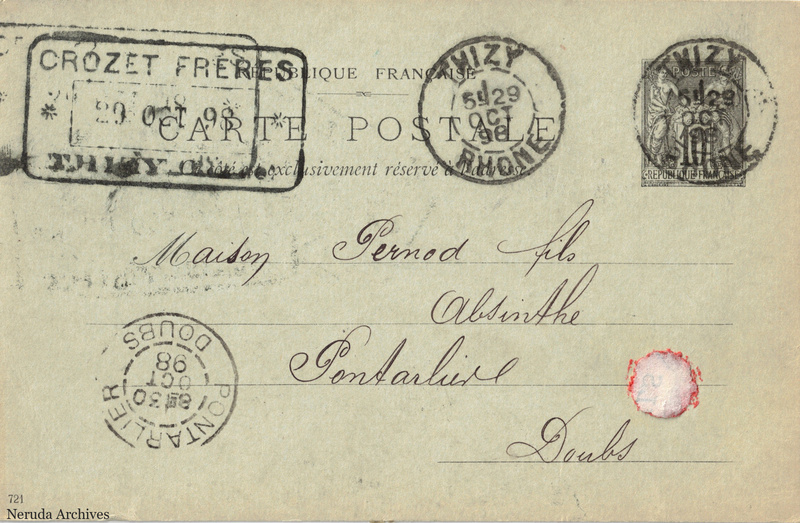 CROZET FRÈRES
29 OCT 98
THIZY
RÉPUBLIQUE FRANÇAISE
CARTE POSTALE
Ce côté est exclusivement réservé à l'adresse.
THIZY
29
OCT
98
RHONE
THIZY
29
OCT
POSTES
10
REPUBLIQUE FRANÇAISE
Maison Pernod fils
Absinthe
Pontarlier
Doubs
PONTARLIER
30
OCT
98
DOUBS
721
Neruda Archives